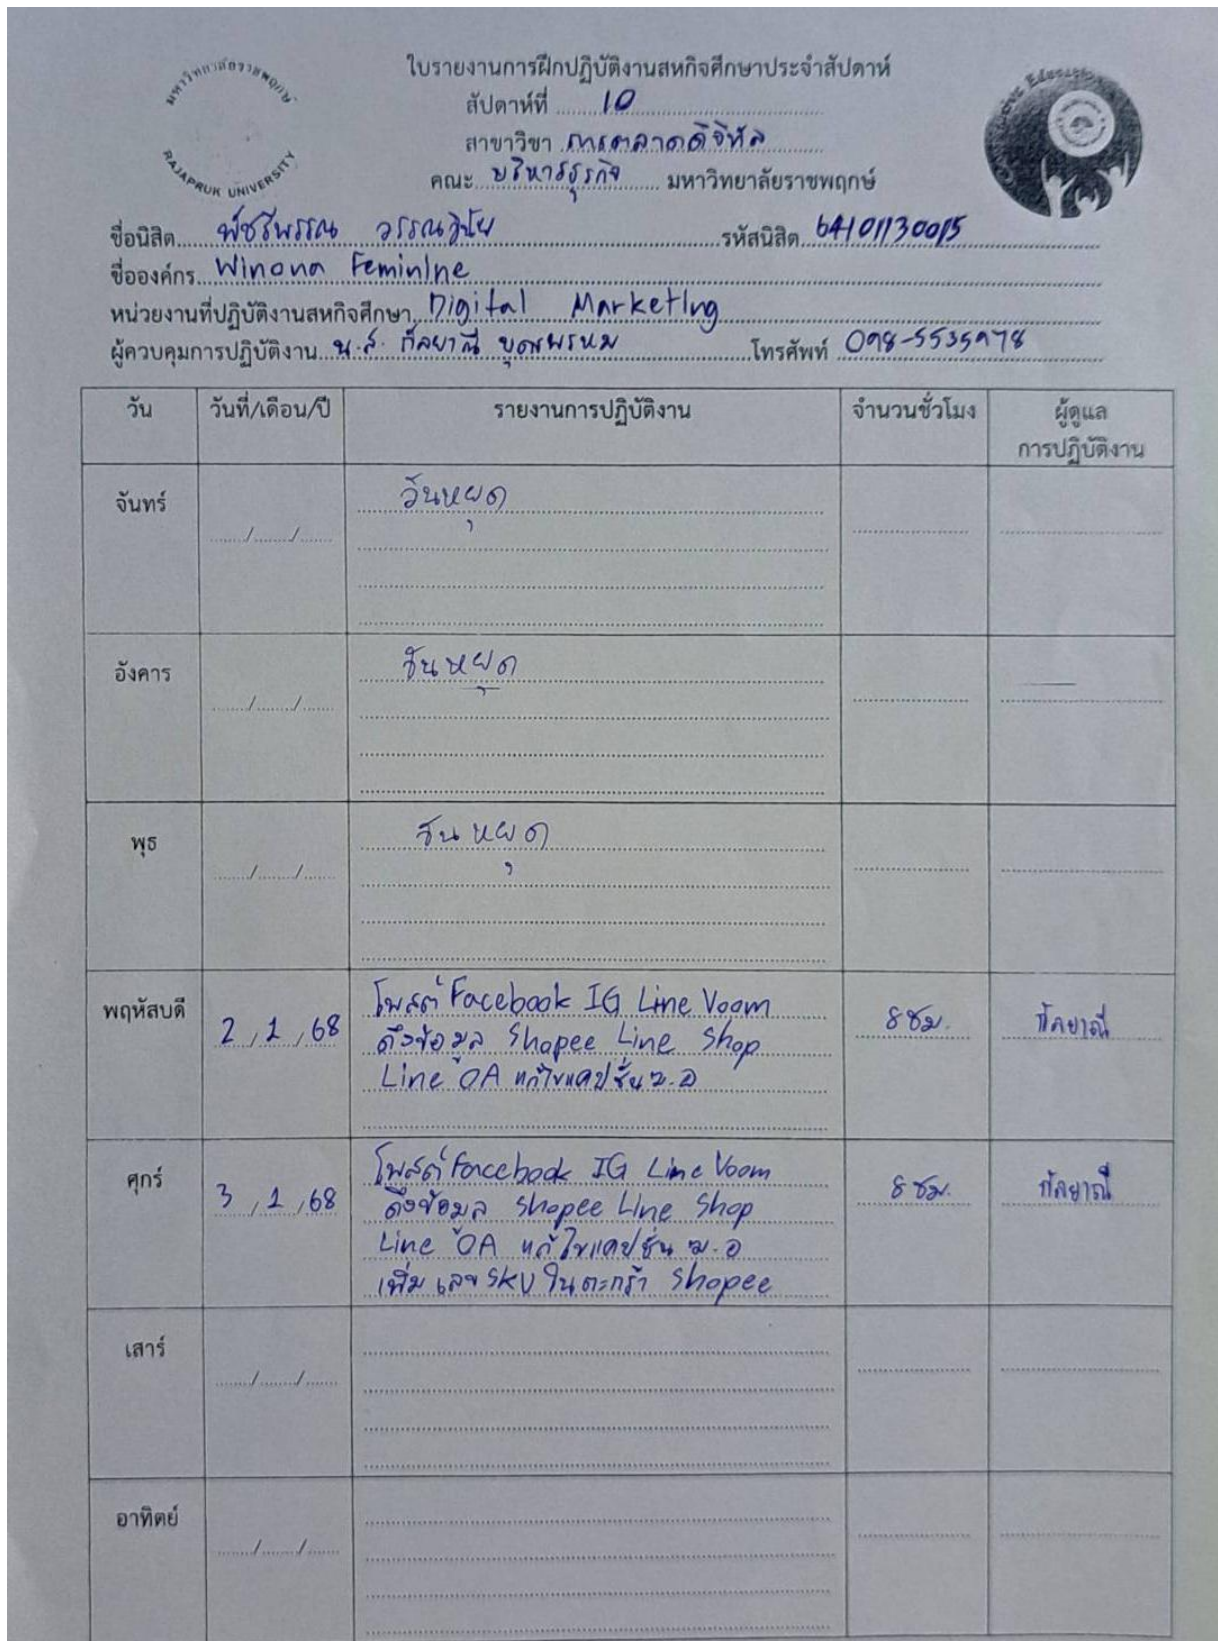 มหาวิทยาลัยราชพฤกษ์
RAJAPRUK UNIVERSITY
ใบรายงานการฝึกปฏิบัติงานสหกิจศึกษาประจำสัปดาห์
สัปดาห์ที่ 10
สาขาวิชา การตลาดดิจิทัล
คณะ บริหารธุรกิจ มหาวิทยาลัยราชพฤกษ์
ชื่อนิสิต พัชรีพรรณ วรรณวินัย รหัสนิสิต 64101130015
ชื่อองค์กร Winona Feminine
หน่วยงานที่ปฏิบัติงานสหกิจศึกษา Digital Marketing
ผู้ควบคุมการปฏิบัติงาน น.ส. กัลยาณี บุญพรหม โทรศัพท์ 098-5535978
วัน วันที่/เดือน/ปี รายงานการปฏิบัติงาน จำนวนชั่วโมง ผู้ดูแล
การปฏิบัติงาน
จันทร์ วันหยุด
อังคาร วันหยุด
พุธ วันหยุด
พฤหัสบดี 2/1/68 โพสต์ Facebook IG Line Voom 8 ชม. กัลยาณี
ดึงข้อมูล Shopee Line Shop
Line OA แก้ไขแคปชั่น ฆ.อ
ศุกร์ 3/1/68 โพสต์ Facebook IG Line Voom 8 ชม. กัลยาณี
ดึงข้อมูล Shopee Line Shop
Line OA แก้ไขแคปชั่น ฆ.อ
เพิ่มเลข SKU ในตะกร้า Shopee
เสาร์
อาทิตย์